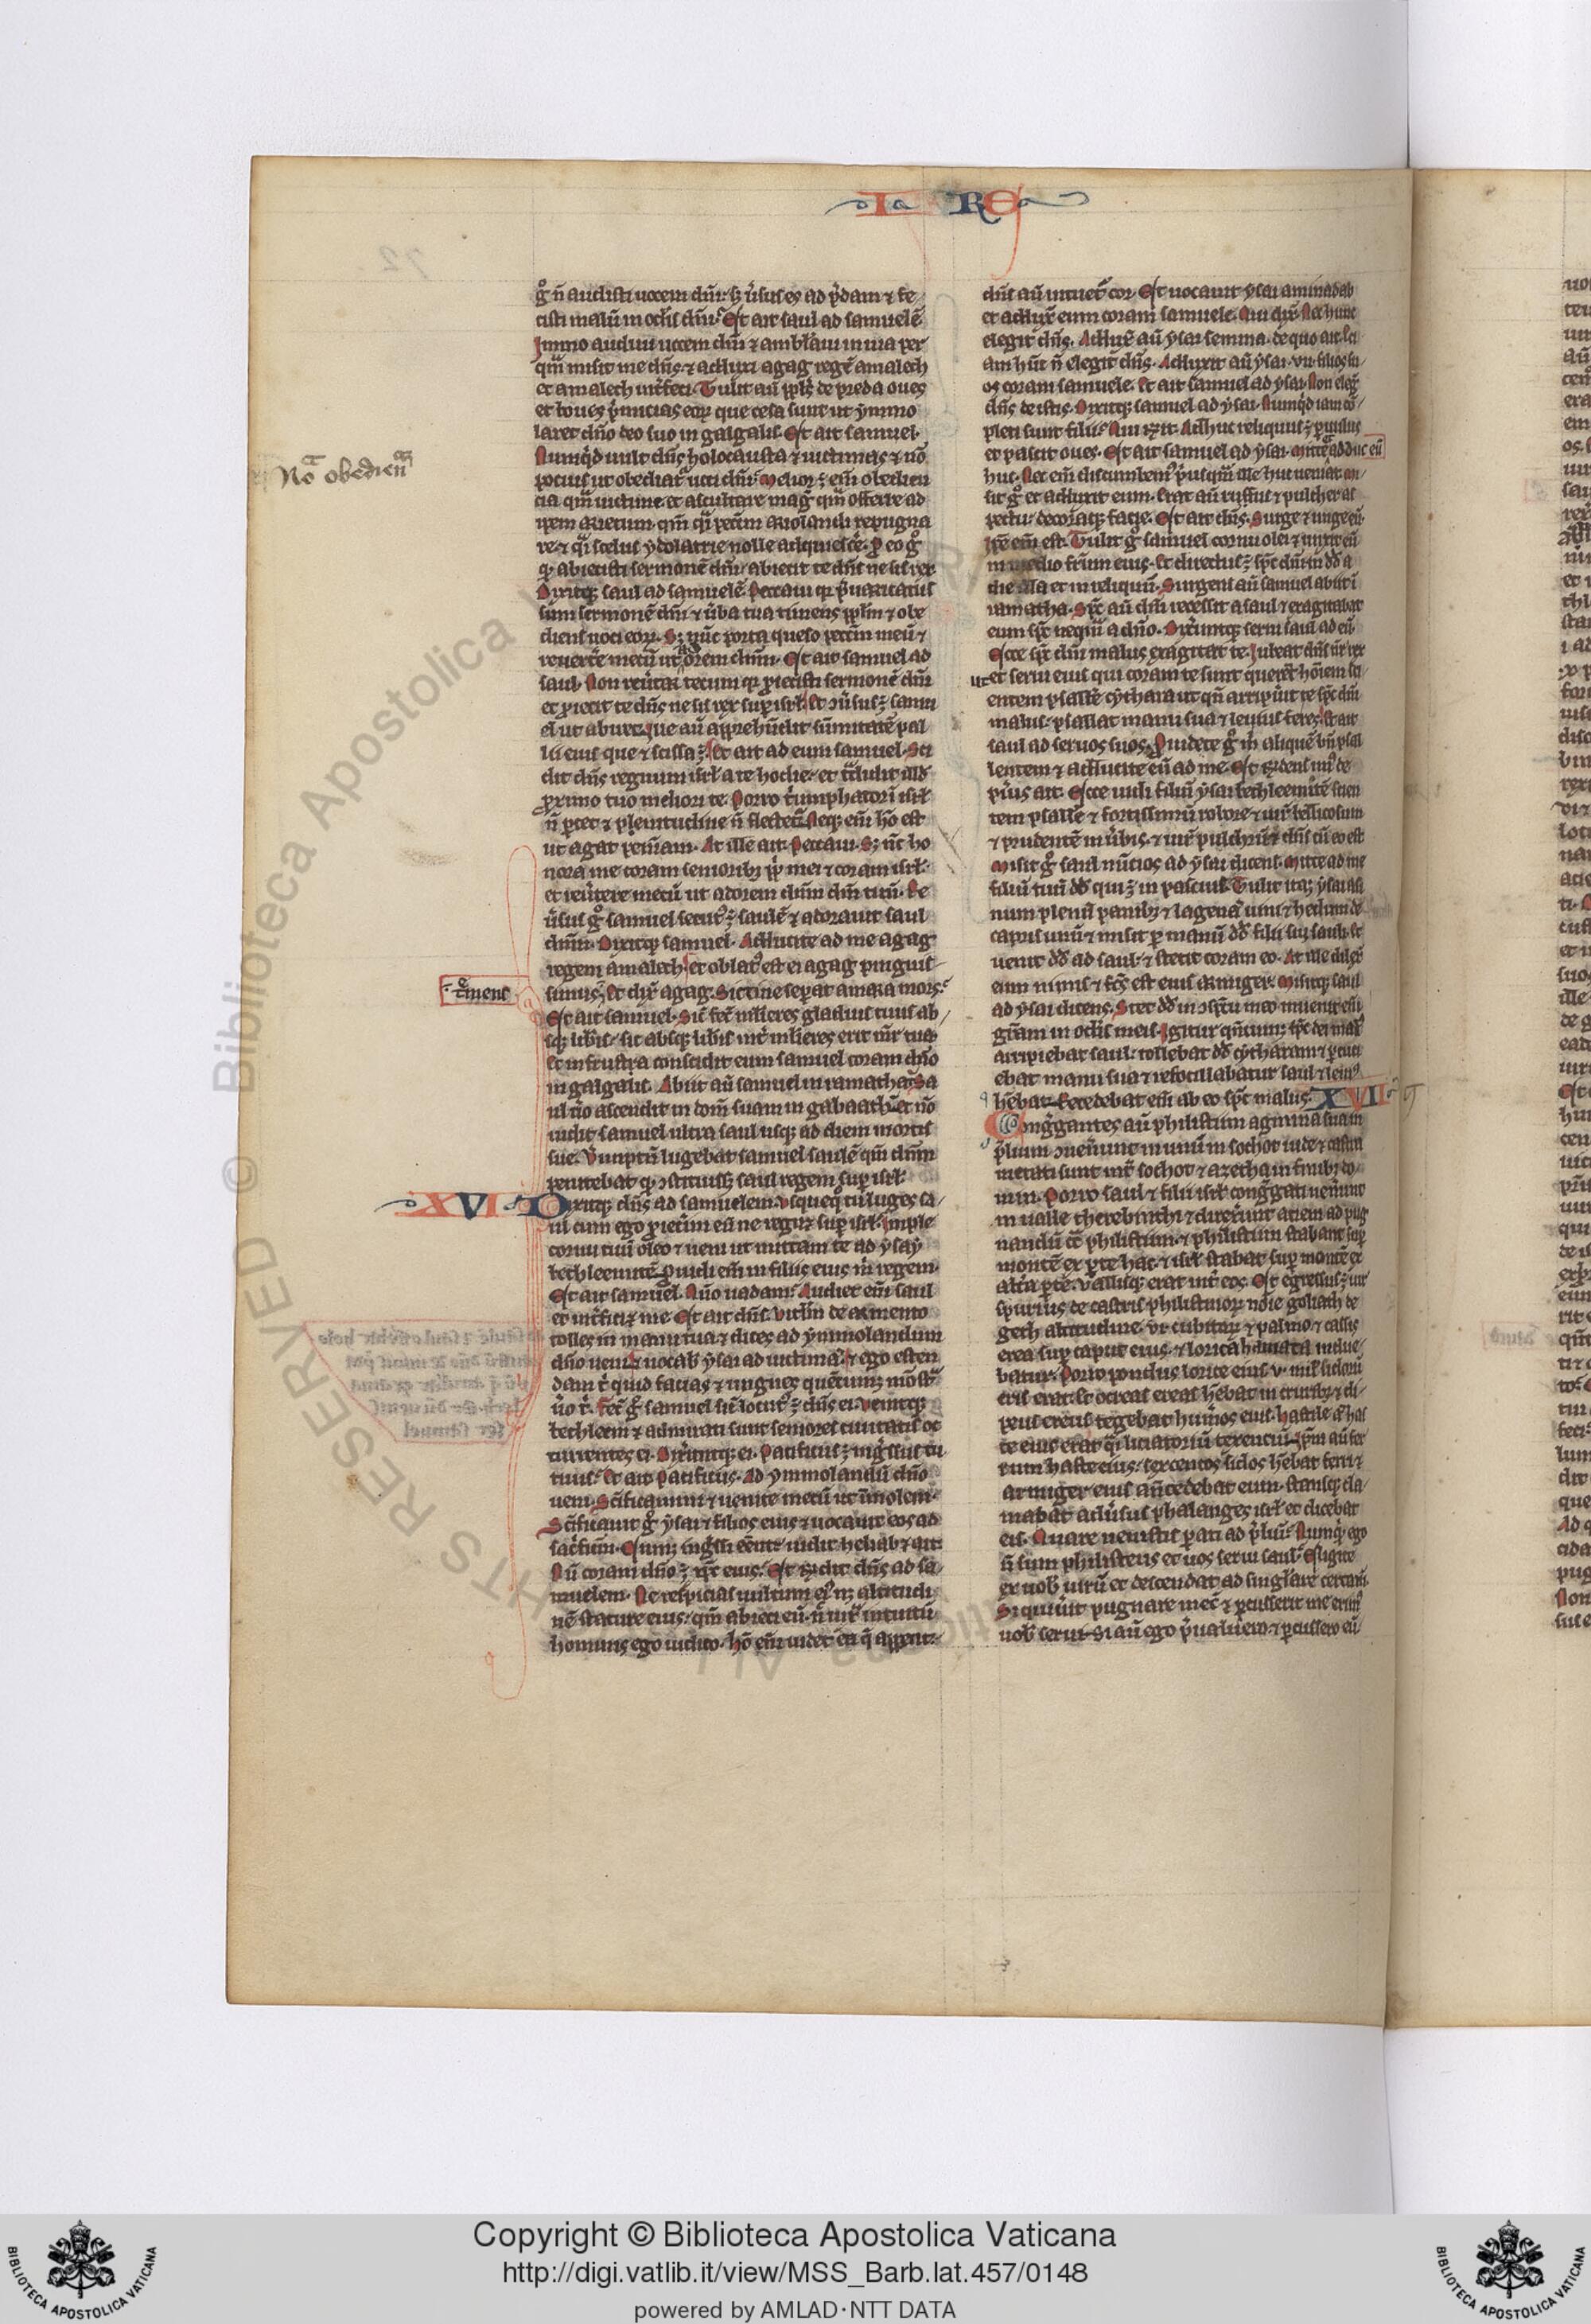 I RE
g̊ ñ audisti uocem dñi· sꝫ ůsus es ad p̾dam ⁊ fe
cisti malū in oclis dñi· Et ait saul ad samuelē
Immo audiui uocem dñi ⁊ ambłaui in uia per
qm̄ misit me dñs ⁊ adduxi agag regē amalech
et amalech int̾feci· Tulit aū ppl̾s de preda oues
et boues p̾micias eoꝝ que cesa sunt ut ymmo
laret dño deo suo in galgalis· Et ait samuel·
Numqͥd uult dñs holocausta ⁊ uictimas ⁊ nō
pocius ut obediat̾ uoci dñi· Melior ē eñi obedien
cia qm̄ uictime· et ascultare mag̾ qm̄ offerre ad
ipem arietum· qm̄ qͥ peccm̄ ariolandi repugna
re· ⁊ qͥ scelus ydolatrie nolle adquiescē· ꝑ eo g̊
qꝫ abiecisti sermonē dñi abiecit te dñs ne sis rex
Dixitqꝫ saul ad samuelē· Peccaui qꝫ p̾uaricatus
sum sermonē dñi ⁊ ůba tua timens pplm̄ ⁊ obe
diens uoci eoꝝ· Sꝫ nūc porta queso peccm̄ meū ⁊
reuerte mecū ut adorem dñm· Et ait samuel ad
saul· Non reůtar tecum qꝫ proiecisti sermonē dñi
et proiecit te dñs ne sis rex sup isrł· Et ꝯůsus ē samu
el ut abiret· Ipe aū apprehēdit sūmitatē pal
lii eius que ⁊ scissa ē· Et ait ad eum samuel· Sci
dit dñs regnum isrł a te hodie· et t̾didit illd̾
proximo tuo meliori te· Porro t̾umphator in isrł
ñ pcet ⁊ plenitudine ñ flectet̾· Neqꝫ eñi hō est
ut agat peniam· At ille ait· Peccaui· Sꝫ ñc ho
nora me coram senioribꝫ ppłi mei ⁊ coram isrł·
et reůtere mecū ut adorem dñm dñi tuū· Re
ůsus g̊ samuel secut̾ ē saulē ⁊ adorauit saul
dñm· Dixitqꝫ samuel· Adducite ad me agag
regem amalech· et oblat̾ est ei agag pinguis
simus· Et dix̄ agag· Siccine separat amara mors·
Et ait samuel· Sic̄ fec̄ mulieres gladius tuus ab
sqꝫ lib̾is· sic absqꝫ lib̾is int̾ mlieres erit mr̄ tua
Et in frustra concidit eum samuel coram dño
in galgalis· Abiit aū samuel in ramatha· Sa
ul ůo ascendit in dom̄ suam in gabaath· et nō
uidit samuel ultra saul usqꝫ ad diem mortis
sue· Verumptn̄ lugebat samuel saulē qm̄ dñm
penitebat qꝫ ꝯstituissꝫ saul regem sup isrł·
XVI Dixitqꝫ dñs ad samuelem· Usquequo tu luges sa
ul cum ego proiecim eū ne regnꝫ sup isrł· Imple
cornu tuū oleo ⁊ ueni ut mittam te ad ysay
bethleemitē· Prouidi eñi in filiis eius m̾ regem·
Et ait samuel· Quo uadam· Audiet eñi saul
et int̾ficiꝫ me· Et ait dñs· Vitłm de armento
tolles in manu tua ⁊ dices ad ymmolandum
dño ueni· ⁊ uocab̾ ysai ad uictimā· ⁊ ego osten
dam t̾ quid facias ⁊ ungues quēcumꝫ mōst̾
ůo t̾· Fec̄ g̊ samuel sic̄ locut̾ ē dñs ei· Venitqꝫ
bethleem ⁊ admirati sunt seniores ciuitatis oc
currentes ei· Dixeruntqꝫ ei· Pacificus ē ingssus tu
tuus· Et ait pacificus· Ad ymmolandū dño
ueni· Sc̄ificamini ⁊ uenite mecū ut ūmolem·
Sc̄ificauit g̊ ysai ⁊ filios eius ⁊ uocauit eos ad
sac̾ficiū· Cumꝫ ing̾ssi eēnt· uidit heliab ⁊ ait·
Nū coram dño ē xp̄c eius· Et dixit dñs ad sa
muelem· Ne respicias uultum eiꝰ nꝫ altitudi
nē stature eius· qm̄ abieci eū· ñ iux̾ intuitū
hominis ego iudico· hō eñi uidet ea q̄ apparent·
Nō obedien̄
timens
dñs aū intuet̾ cor· Et uocauit ysai aminadab
et addux̾ eum coram samuele· Qui dix̾· Nec hunc
elegit dñs· Adduxē aū ysai semma· de quo ait· Et
iam hūc ñ elegit dñs· Adduxit aū ysai· vii· filios su
os coram samuele· Et ait samuel ad ysai· Non eleg̾
dñs de istis· Dixitqꝫ samuel ad ysai· Numqͥd iam cō
pleti sunt filii· Qui rx̄it· Adhuc reliquus ē puulus
et pascit oues· Et ait samuel ad ysai· Mitte ⁊ adduc eū
huc· Nec eñi discumbem̾ p̾usqm̄ ille huc ueniat· mi
sit g̊ et adduxit eum· Erat aū ruffus ⁊ pulcher as
pectu· decoraqꝫ facie· Et ait dñs· Surge ⁊ unge eū
ipē eñi est· Tulit g̊ samuel cornu olei ⁊ unxit eū
in medio frīum eius· Et directus ē spc̄ dñi in dd̾ a
die illa et in reliquū· Surgens aū samuel abiit ī
ramatha· Spc̄ aū dñi recessit a saul ⁊ exagitabat
eum spc̄ nequā a dño· Dixeruntqꝫ serui saul ad eū
Ecce spc̄ dñi malus exagitat te· Iubeat dñs ñr rex
ut et serui eius qui coram te sunt querēt hoīem sci
entem psallē cythara ut qñ arripūit te spc̄ dñi
malus· psallat manu sua ⁊ leuius feres· Et ait
saul ad seruos suos· Prouidete g̊ m̾ aliquē bñ psal
lentem ⁊ adducite eū ad me· Et rx̄dens un̾ de
pūis ait· Ecce uidi filiū ysai bethleemitē scien
tem psallē ⁊ fortissimū robore ⁊ uir̄ bellicosum
⁊ prudentē in ůbis· ⁊ uir̄ pulchrū ⁊ dñs cū eo est
Misit g̊ saul nūcios ad ysai dicens· Mitte ad me
filiū tuū dd̾ qui ē in pascuis· Tulit itaqꝫ ysai asi
num plenū panibꝫ ⁊ lagenā uini ⁊ hedum de
capris unū ⁊ misit p manū dd̾ filii sui sauli· Et
uenit dd̾ ad saul· ⁊ stetit coram eo· At ille dilex̾
eum nimis ⁊ fc̄s est eius armiger· Misitqꝫ saul
ad ysai dicens· Stet dd̾ in ꝯspc̄tu meo inuenit eñi
grām in oclis meis· Igitur qñcumqꝫ spc̄ dei mal̾
arripiebat saul· tollebat dd̾ cytharam ⁊ pcuci
ebat manu sua ⁊ refocillabatur saul ⁊ leui̾
hēbat· Recedebat eñi ab eo spc̄ malus· XVII
Cong̾gantes aū philistiim agmina sua in
p̾lium ꝯuenerunt in unū in sochot iude ⁊ castra
metati sunt int̾ sochot ⁊ azecha in finibꝫ do
mim· Porro saul ⁊ filii isrł cong̾gati uenerunt
in ualle therebinthi ⁊ direx̾unt aciem ad pug
nandū cō philistiim· ⁊ philistiim stabant sup
montē ex pte hac· ⁊ isrł stabat sup montē ex
alt̾a pte· Vallisqꝫ erat int̾ eos· Et egressus ē uir
spurius de castris philistinoꝝ nōie goliath de
geth altitudine· vi· cubitoꝝ ⁊ palmo· ⁊ cassis
erea sup caput eius· ⁊ lorica hamata indue
batur· Porro pondus lorice eius· v· mił siclorū
eris erat· Et ocreas ereas hēbat in cruribꝫ ⁊ cli
peus ereus tegebat hum̾os eius· Hastile aū has
te eius erat qͥ liciatoriū texenciū· Ipm̄ aū fer
rum haste eius· sexcentos siclos hēbat ferri ⁊
armiger eius an̄cedebat eum· Stansqꝫ cla
mabat adůsus phalanges isrł et dicebat
eis· Quare uenistis parati ad p̾liū· Numqͥd ego
ñ sum philisteus et uos serui saul· Eligite
ex uob̾ uirū et descendat ad singłare certam̄·
Si quiůit pugnare mecū ⁊ pcusserit me erim̾
uob̾ serui· Si aū ego p̾ualuero· ⁊ pcussero eū
Copyright © Biblioteca Apostolica Vaticana
http://digi.vatlib.it/view/MSS_Barb.lat.457/0148
powered by AMLAD·NTT DATA
BIBLIOTECA APOSTOLICA VATICANA
BIBLIOTECA APOSTOLICA VATICANA